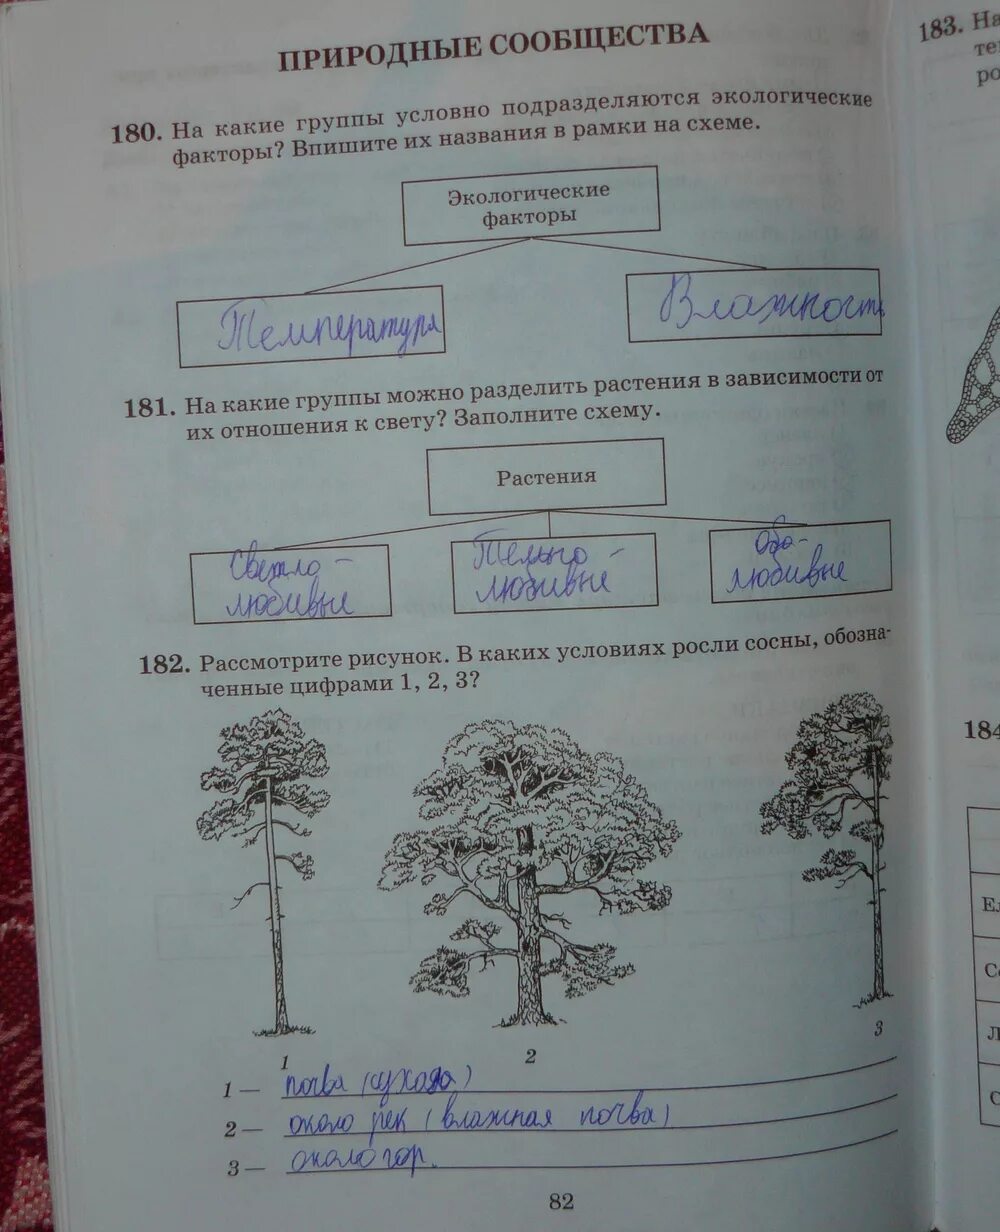 ПРИРОДНЫЕ СООБЩЕСТВА
180. На какие группы условно подразделяются экологические
факторы? Впишите их названия в рамки на схеме.
Экологические
факторы
Температура
Влажность
181. На какие группы можно разделить растения в зависимости от
их отношения к свету? Заполните схему.
Растения
Светло-
любивые
любивые
любивые
182. Рассмотрите рисунок. В каких условиях росли сосны, обозна-
ченные цифрами 1, 2, 3?
1
2
3
1 — почва
2 — около рек (влажная почва)
3 — около гор.
82
183. На
те
ро
184
Ел
Со
Л
С